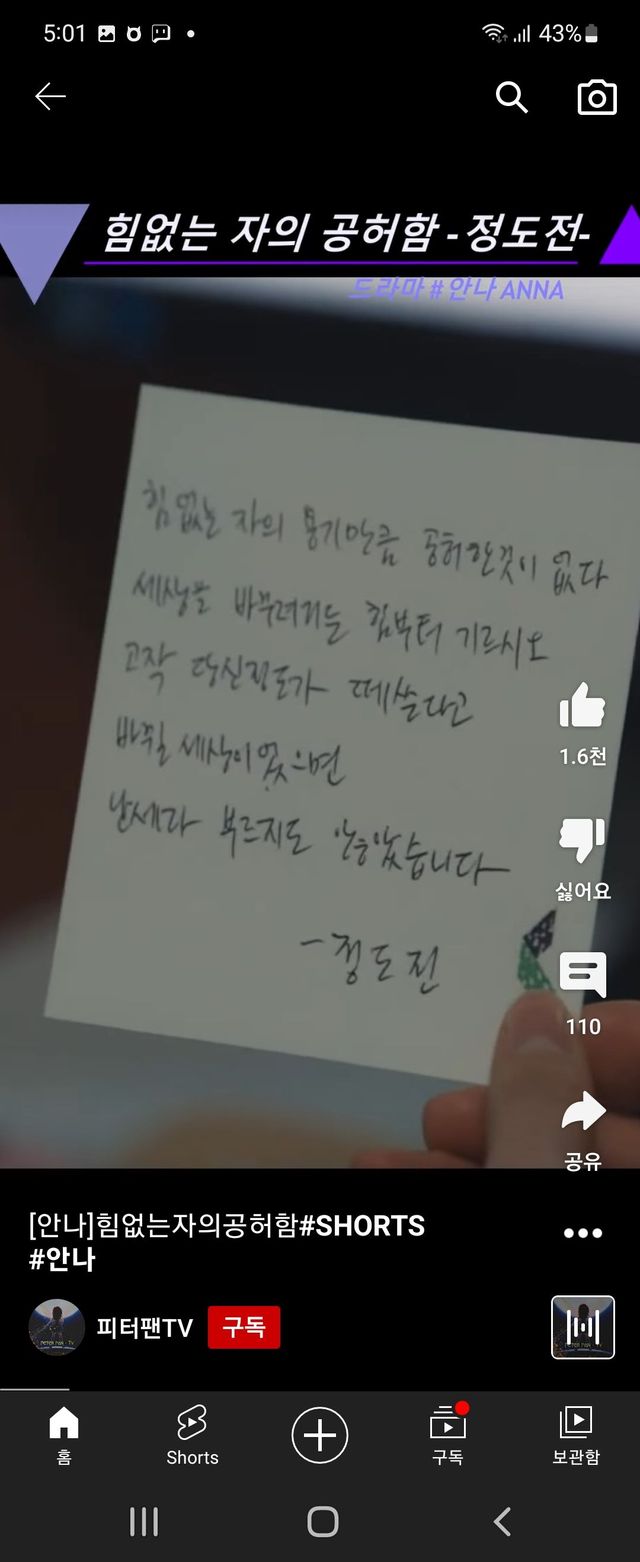 5:01
43%
힘없는 자의 공허함 -정도전-
드라마 #안나 ANNA
힘 없는 자의 용기만큼 공허한것이 없다
세상을 바꾸려거든 힘부터 기르시오
고작 당신정도가 떼쓴다고
바뀔 세상이었으면
난세라 부르지도 않았습니다
-정도전
1.6천
싫어요
110
공유
[안나]힘없는자의공허함#SHORTS
#안나
피터팬TV 구독
홈 Shorts 구독 보관함